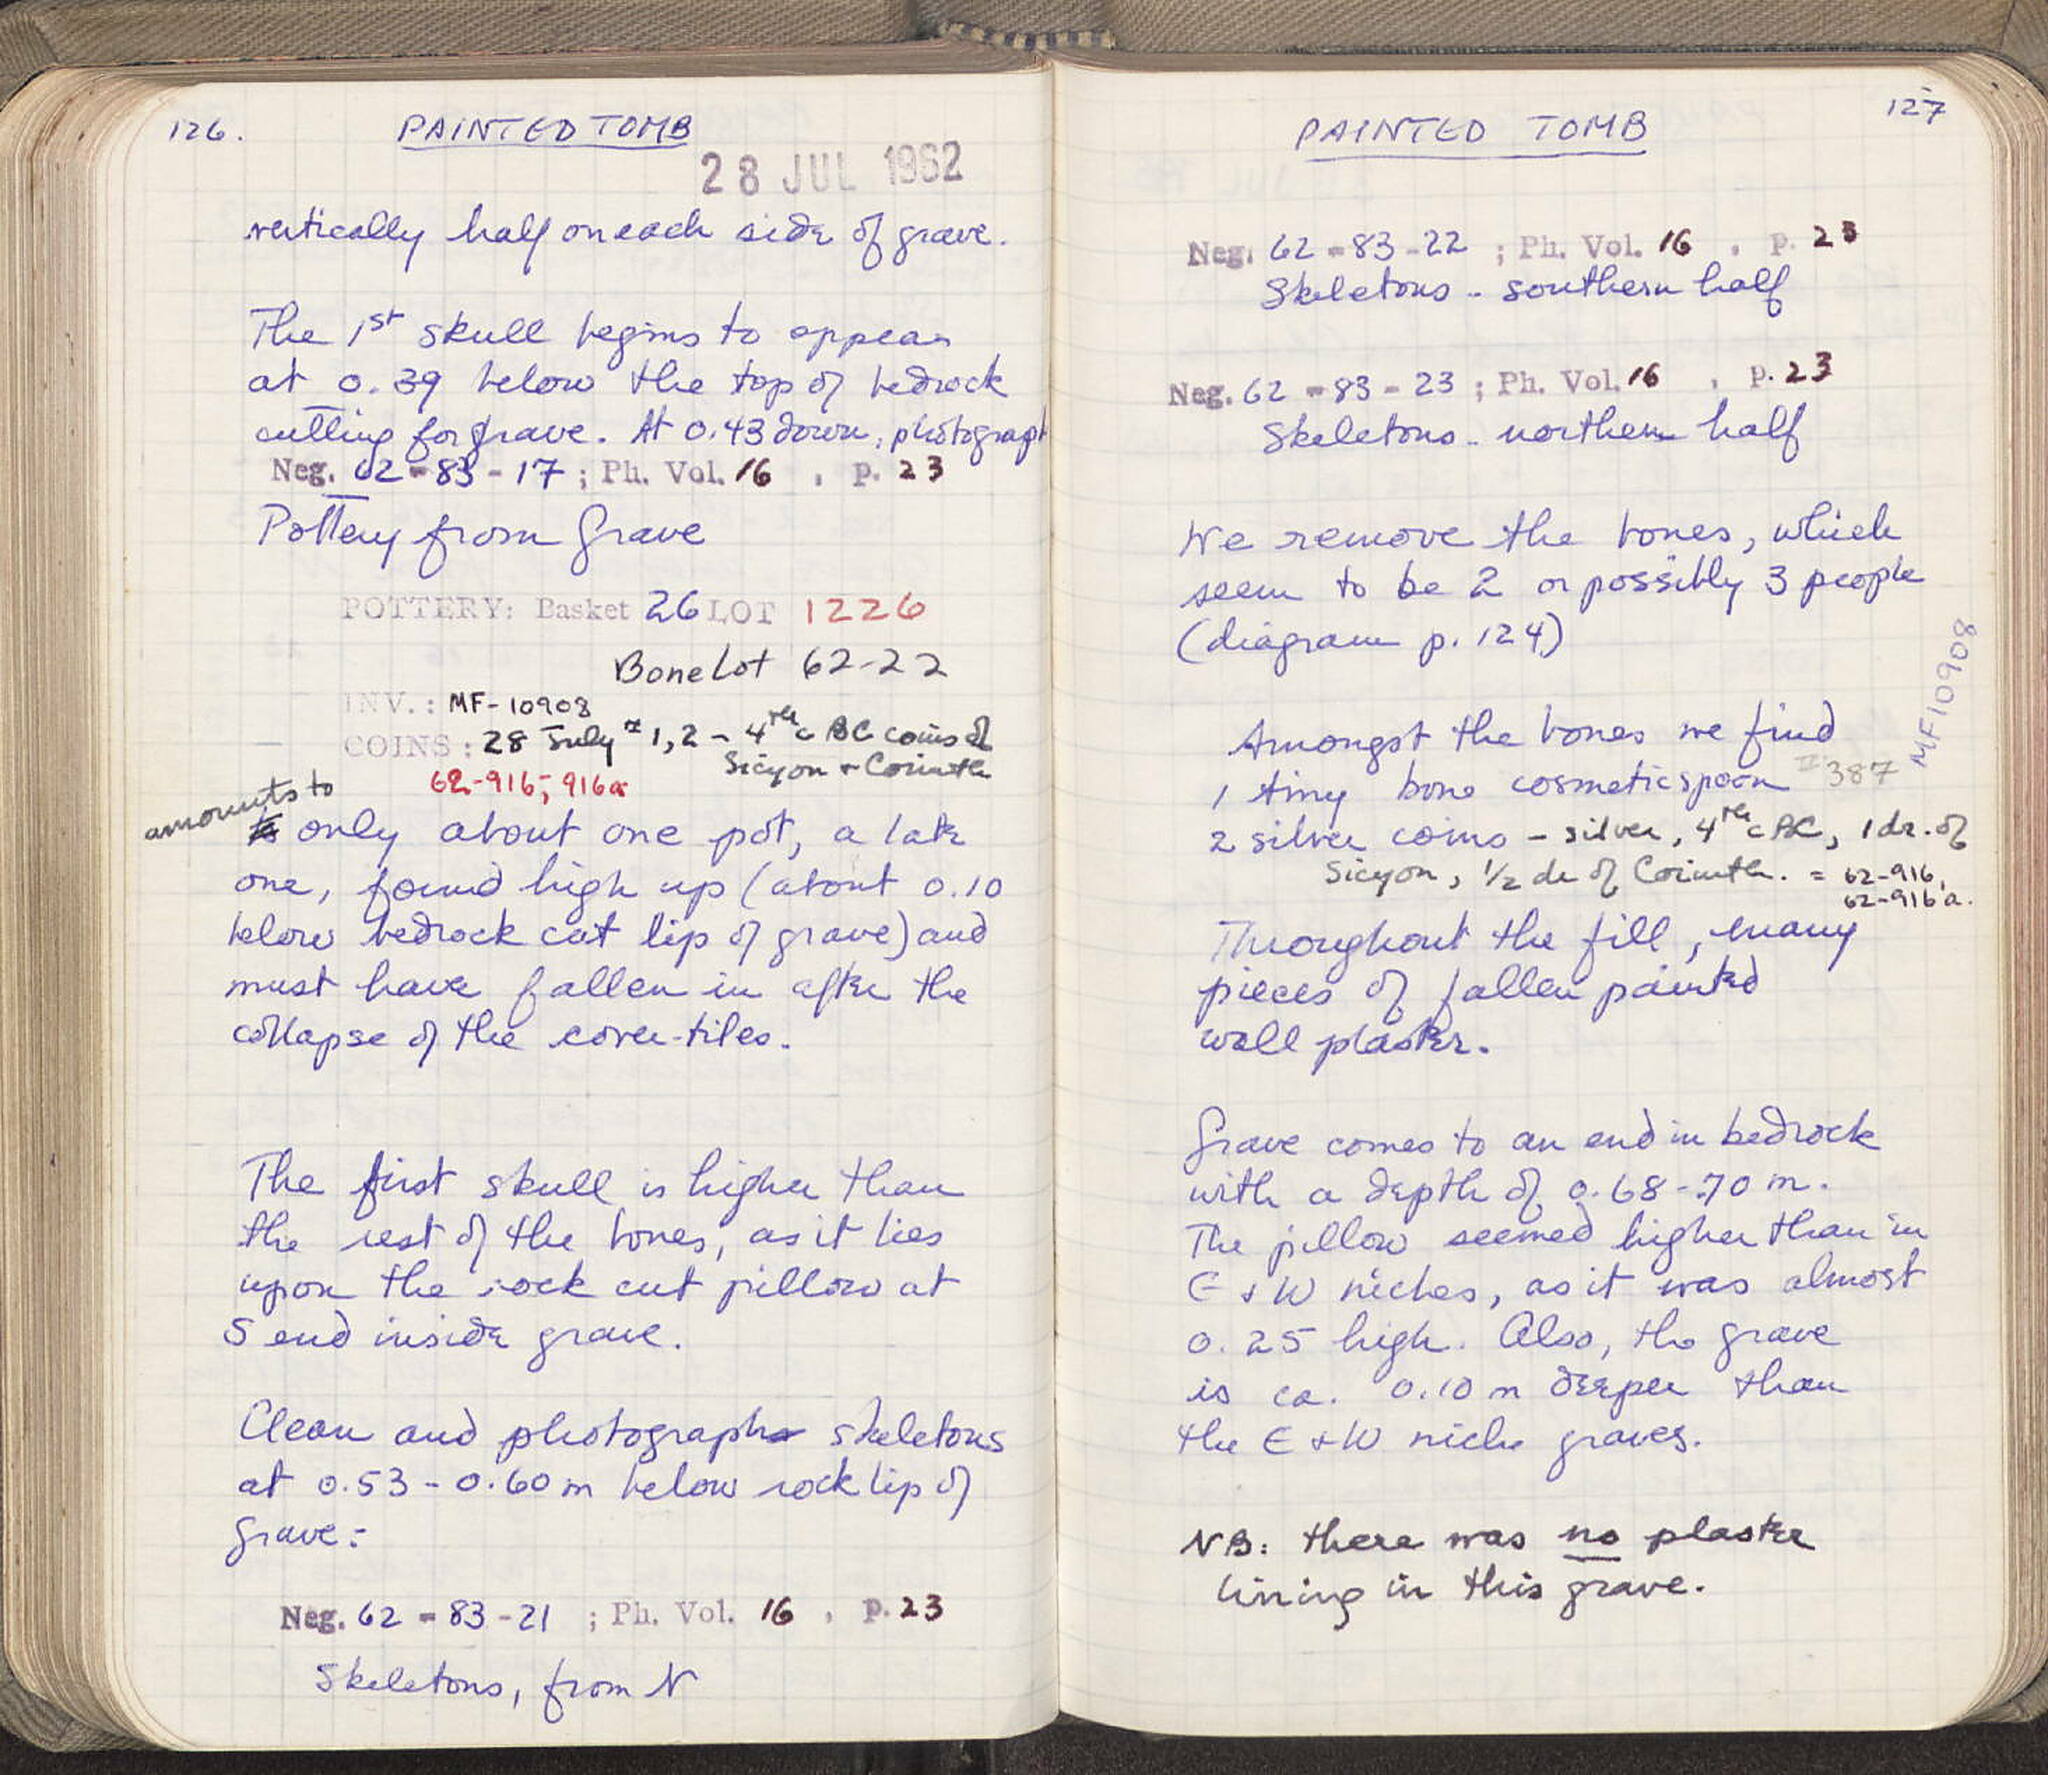 126.
PAINTED TOMB
28 JUL 1962
vertically half on each side of grave.
The 1st skull begins to appear
at 0.39 below the top of bedrock
cutting for grave. At 0.43 down, photograph
Neg. 62-83-17 ; Ph. Vol. 16 , p. 23
Pottery from Grave
POTTERY: Basket 26 LOT 1226
Bone Lot 62-22
INV.: MF-10908
COINS: 28 July # 1, 2 - 4th c BC coins of
Sicyon + Corinth
62-916; 916a
amounts to
only about one pot, a late
one, found high up (about 0.10
below bedrock cut lip of grave) and
must have fallen in after the
collapse of the cover-tiles.
The first skull is higher than
the rest of the bones, as it lies
upon the rock cut pillow at
S end inside grave.
Clean and photograph skeletons
at 0.53 - 0.60 m below rock lip of
grave:
Neg. 62-83-21 ; Ph. Vol. 16 , p. 23
Skeletons, from N
127
PAINTED TOMB
Neg. 62-83-22 ; Ph. Vol. 16 , p. 23
Skeletons - southern half
Neg. 62-83-23 ; Ph. Vol. 16 , p. 23
Skeletons - northern half
We remove the bones, which
seem to be 2 or possibly 3 people
(diagram p. 124)
MF10908
Amongst the bones we find
1 tiny bone cosmetic spoon 387
2 silver coins - silver, 4th c BC, 1 dr. of
Sicyon, 1/2 dr of Corinth. = 62-916,
62-916a.
Throughout the fill, many
pieces of fallen painted
wall plaster.
Grave comes to an end in bedrock
with a depth of 0.68-.70 m.
The pillow seemed higher than in
E + W niches, as it was almost
0.25 high. Also, the grave
is ca. 0.10 m deeper than
the E + W niche graves.
NB: there was no plaster
lining in this grave.